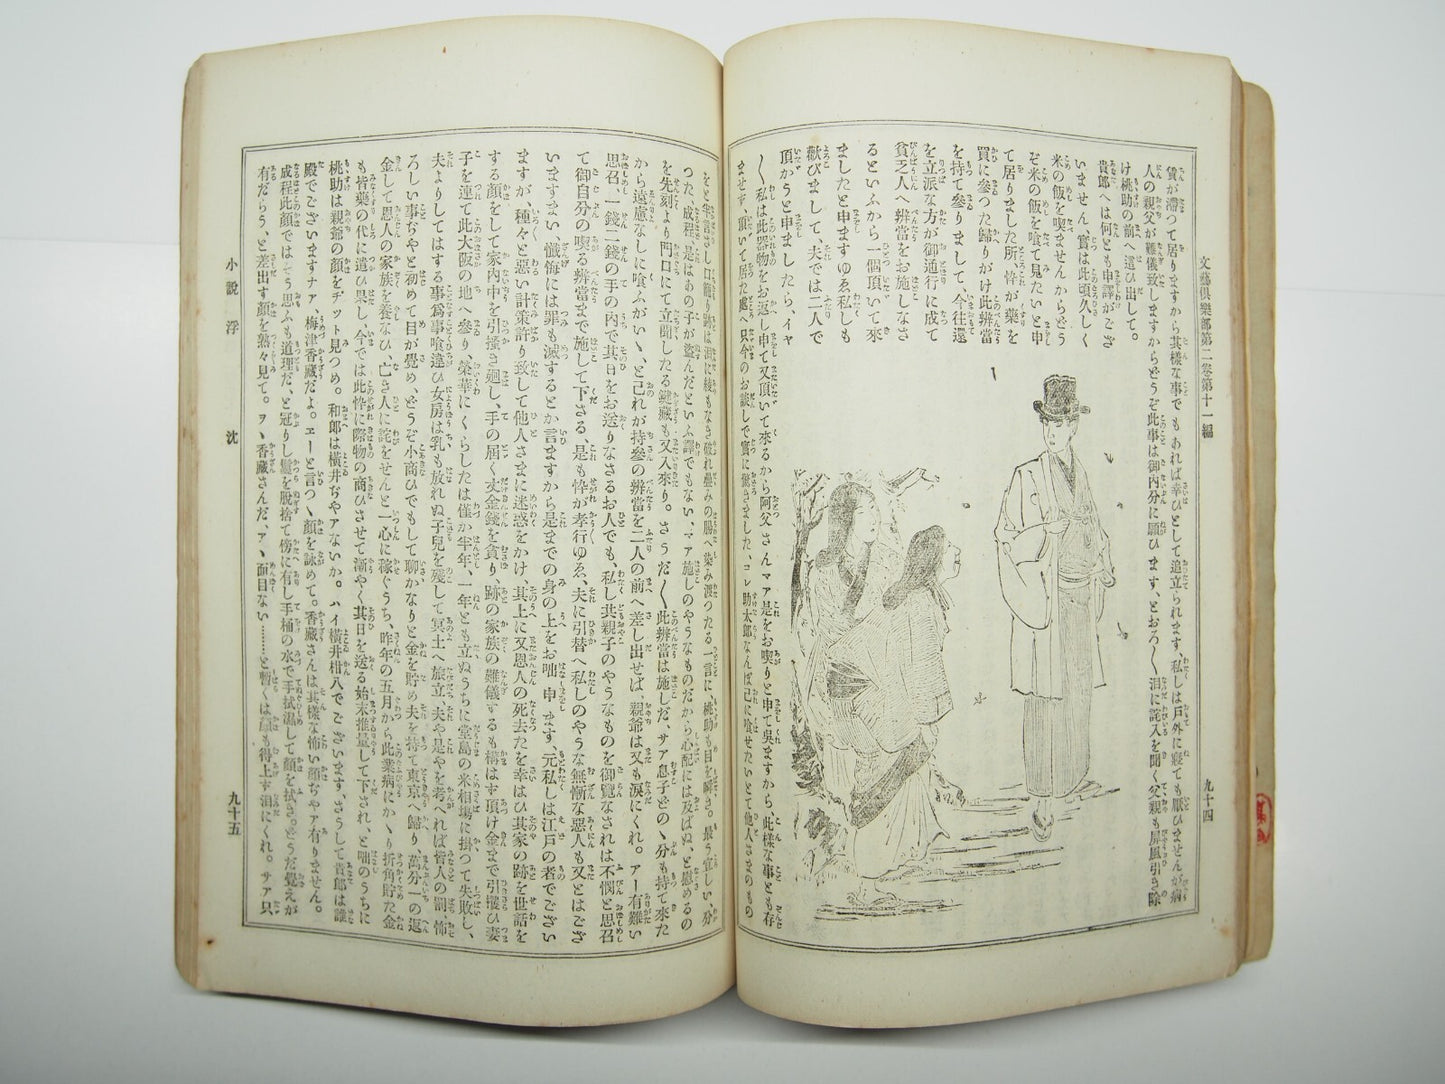 文藝倶樂部第二巻第十一編
九十四
賃が滯つて居りますから其樣な事でもあれば幸ひとして追立られます、私しは戸外に寢ても厭ひませんが病
人の親父が難儀致しますからどうぞ此事は御内分に願ひます、とおろ〱泪に詫入を聞く父親も屏風引き除
け桃助の前へ這ひ出して。
貴郎へは何とも申譯がござ
いません、實は此頃久しく
米の飯を喫ませんからどう
ぞ米の飯を喰て見たいと申
て居りました所、忰が藥を
買に參つた歸りがけ此辨當
を持て參りまして、今往還
を立派な方が御通行に成て
貧乏人へ辨當をお施しなさ
るといふから一個頂いて來
ましたと申ますゆゑ私しも
歡びまして、夫では二人で
頂かうと申ましたら、イヤ
〱私しは此器物をお返し申て又頂いて來るから阿父さんマア是をお喫りと申て呉ますから此樣な事とも存
ませず、頂いて居た處、只今のお談しで實に驚きました、コレ助太郎なんぼ己に喰せたいとて他人さまのもの
つた、成程、是はあの子が盜んだといふ譯でもない、マア施しのやうなものだから心配には及ばぬ、と慰めるの
を先刻より門口にて立聞したる鍵藏も又入來り。さうだ〱此辨當は施しだ、サア息子どのゝ分も持て來た
から遠慮なしに喰ふがいゝ、と己れが持參の辨當を二人の前へ差し出せば、親爺は又も涙にくれ。アー有難い
思召、一錢二錢の手の内で其日をお送りなさるお人でも、私し共親子のやうなものを御覽なされは不憫と思召
て御自分の喫る辨當まで施して下さる、是も忰が孝行ゆゑ、夫に引替へ私しのやうな無慚な惡人も又とはござ
いますまい、懺悔には罪も滅するとか言ますから是までの身の上をお咄し申ます、元私しは江戸の者でござい
ますが、種々と惡い計策許り致して他人さまに迷惑をかけ、其上に又恩人の死去たを幸ひ其家の跡を世話を
する顔をして家内中を引搔き廻し、手の屆く丈金錢を貪り、跡の家族の難儀するも構はず頂け金まで引攫ひ妻
子を連て此大阪の地へ參り、榮華にくらしたは僅か半年、一年とも立ぬうちに堂島の米相場に掛つて失敗し、
夫よりしてはする事爲事喰違ひ女房は乳も放れぬ子兒を殘して冥土へ旅立、夫や是やを考へれば皆人の罰、怖
ろしい事ぢやと初めて目が覺め、どうぞ小商ひでもして聊かなりと金を貯め夫を持て東京へ歸り、萬分一の返
金して恩人の家族を養ひ、亡き人に詫をせんと一心に稼ぐうち、昨年の五月から此業病にかゝり折角貯た金
も皆藥の代に遣ひ果し、今では此忰に際物の商ひさせて漸やく其日を送る始末推量して下され、と咄のうちに
桃助は親爺の顔をヂット見つめ。和郎は橫井ぢやアないか。ハイ橫井柑八でございます、さうして貴郎は誰
殿でございますナァ、梅津香藏だよ。エーと言つゝ顔を詠めて。香藏さんは其樣な怖い顔ぢやア有りません。
成程此顔ではさう思ふも道理だ、と冠りし鬘を脱捨て傍に有し手桶の水で手拭濕して顔を拭き。どうだ覺えが
有だらう、と差出す顔を熟々見て。ヲゝ香藏さんだ、アゝ面目ない……と暫くは顔も得上ず泪にくれ。サア只
小説 浮沈
九十五